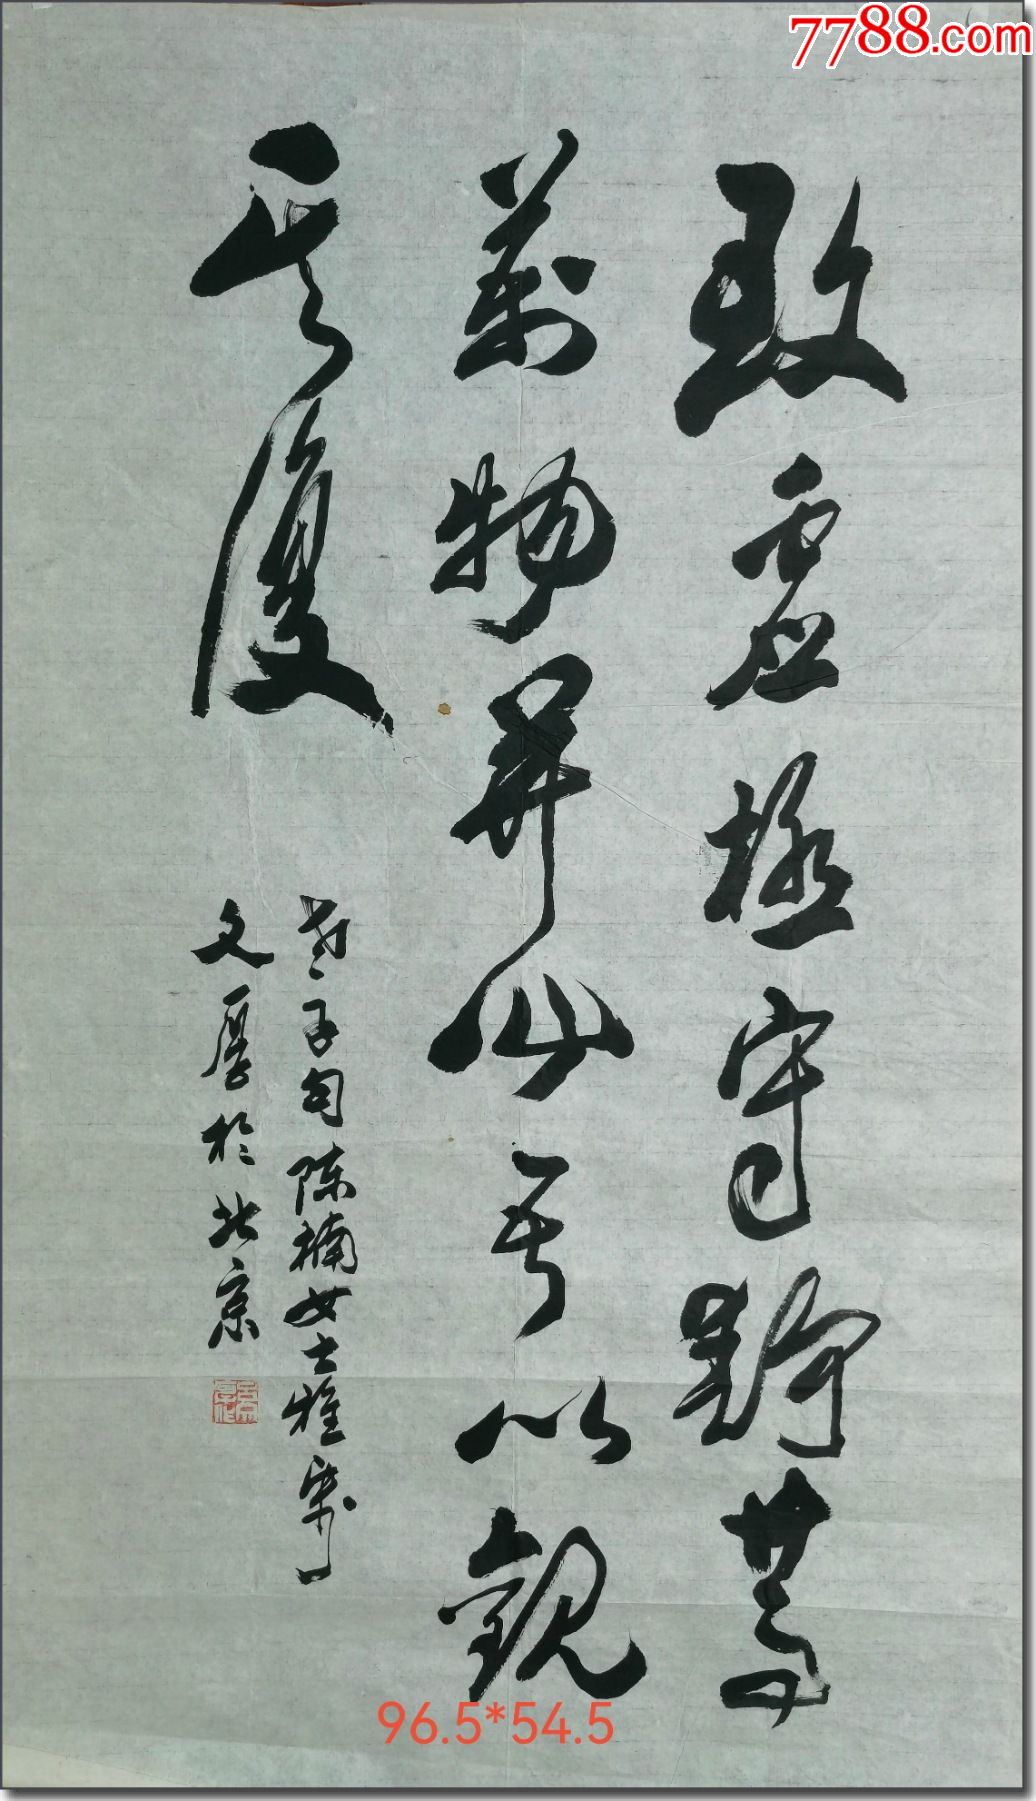 7788.com
致虚極守靜篤
萬物并作吾以觀
其復
老子句 陈楠女士雅
文厚於北京
96.5*54.5